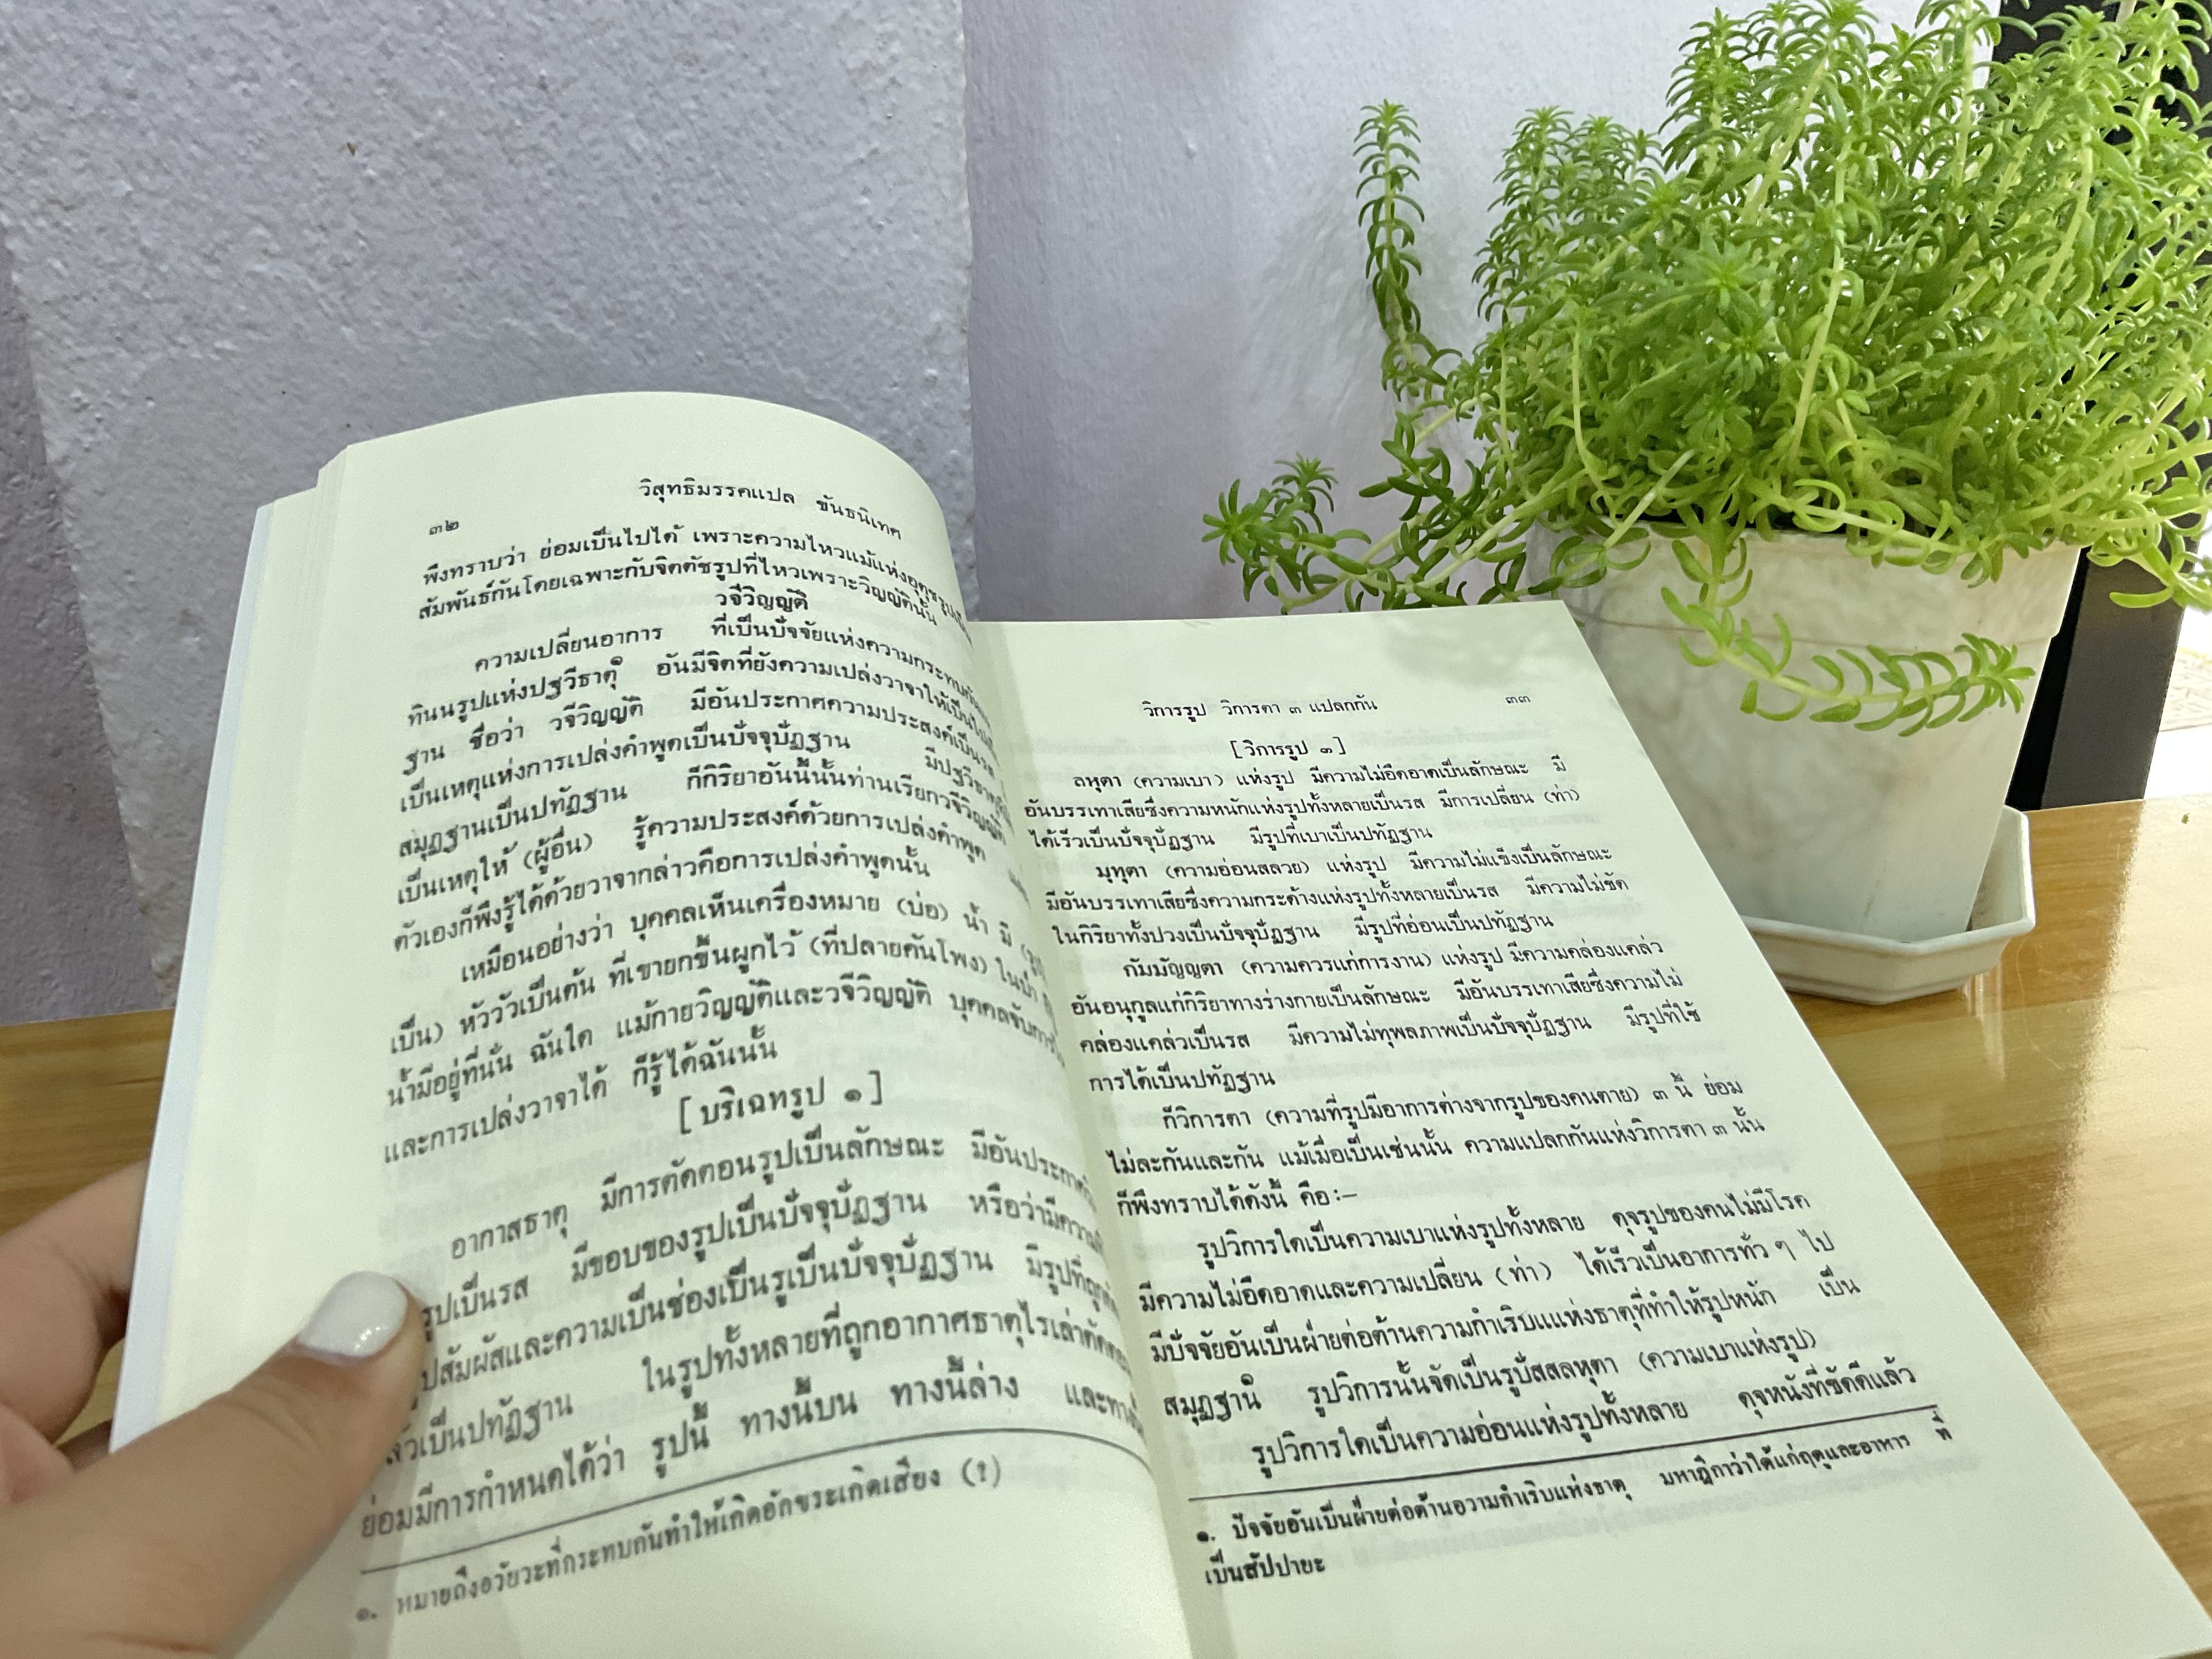 ๓๒
วิสุทธิมรรคแปล ขันธนิเทศ
พึงทราบว่า ย่อมเป็นไปได้ เพราะความไหวแม้แห่งอุตุชรูป
สัมพันธ์กันโดยเฉพาะกับจิตตัชรูปที่ไหวเพราะวิญญัตินั้น
วจีวิญญัติ
ความเปลี่ยนอาการ ที่เป็นปัจจัยแห่งความกระทบกัน
ทินนรูปแห่งปฐวีธาตุ๑ อันมีจิตที่ยังความเปล่งวาจาให้เป็นไป
ฐาน ชื่อว่า วจีวิญญัติ มีอันประกาศความประสงค์เป็นรส
เป็นเหตุแห่งการเปล่งคำพูดเป็นปัจจุปัฏฐาน มีปฐวีธาตุ
สมุฏฐานเป็นปทัฏฐาน ก็กิริยาอันนี้นั้นท่านเรียกวจีวิญญัติ
เป็นเหตุให้ (ผู้อื่น) รู้ความประสงค์ด้วยการเปล่งคำพูด
ตัวเองก็พึงรู้ได้ด้วยวาจากล่าวคือการเปล่งคำพูดนั้น
เหมือนอย่างว่า บุคคลเห็นเครื่องหมาย (บ่อ) น้ำ มี
เป็น) หัววัวเป็นต้น ที่เขายกขึ้นผูกไว้ (ที่ปลายคันโพง) ในป่า
น้ำมีอยู่ที่นั่น ฉันใด แม้กายวิญญัติและวจีวิญญัติ บุคคลจับการ
และการเปล่งวาจาได้ ก็รู้ได้ฉันนั้น
[บริเฉทรูป ๑]
อากาสธาตุ มีการตัดตอนรูปเป็นลักษณะ มีอันประกาศ
รูปเป็นรส มีขอบของรูปเป็นปัจจุปัฏฐาน หรือว่ามีความ
สัมผัสและความเป็นช่องเป็นรูเป็นปัจจุปัฏฐาน มีรูปที่ถูก
แล้วเป็นปทัฏฐาน ในรูปทั้งหลายที่ถูกอากาศธาตุไรเล่าตัด
ย่อมมีการกำหนดได้ว่า รูปนี้ ทางนี้บน ทางนี้ล่าง และ
๑. หมายถึงอวัยวะที่กระทบกันทำให้เกิดอักขระเกิดเสียง (?)
วิการรูป วิการตา ๓ แปลกกัน ๓๓
[วิการรูป ๓]
ลหุตา (ความเบา) แห่งรูป มีความไม่อืดอาดเป็นลักษณะ มี
อันบรรเทาเสียซึ่งความหนักแห่งรูปทั้งหลายเป็นรส มีการเปลี่ยน (ท่า)
ได้เร็วเป็นปัจจุปัฏฐาน มีรูปที่เบาเป็นปทัฏฐาน
มุทุตา (ความอ่อนสลวย) แห่งรูป มีความไม่แข็งเป็นลักษณะ
มีอันบรรเทาเสียซึ่งความกระด้างแห่งรูปทั้งหลายเป็นรส มีความไม่ขัด
ในกิริยาทั้งปวงเป็นปัจจุปัฏฐาน มีรูปที่อ่อนเป็นปทัฏฐาน
กัมมัญญตา (ความควรแก่การงาน) แห่งรูป มีความคล่องแคล่ว
อันอนุกูลแก่กิริยาทางร่างกายเป็นลักษณะ มีอันบรรเทาเสียซึ่งความไม่
คล่องแคล่วเป็นรส มีความไม่ทุพลภาพเป็นปัจจุปัฏฐาน มีรูปที่ใช้
การได้เป็นปทัฏฐาน
ก็วิการตา (ความที่รูปมีอาการต่างจากรูปของคนตาย) ๓ นี้ ย่อม
ไม่ละกันและกัน แม้เมื่อเป็นเช่นนั้น ความแปลกกันแห่งวิการตา ๓ นั้น
ก็พึงทราบได้ดังนี้ คือ:—
รูปวิการใดเป็นความเบาแห่งรูปทั้งหลาย ดุจรูปของคนไม่มีโรค
มีความไม่อืดอาดและความเปลี่ยน (ท่า) ได้เร็วเป็นอาการทั่ว ๆ ไป
มีปัจจัยอันเป็นฝ่ายต่อต้านความกำเริบแแห่งธาตุที่ทำให้รูปหนัก เป็น
สมุฏฐาน๑ รูปวิการนั้นจัดเป็นรูปัสสลหุตา (ความเบาแห่งรูป)
รูปวิการใดเป็นความอ่อนแห่งรูปทั้งหลาย ดุจหนังที่ขัดดีแล้ว
๑. ปัจจัยอันเป็นฝ่ายต่อต้านอวามกำเริบแห่งธาตุ มหาฎีกาว่าได้แก่ฤดูและอาหาร ที่
เป็นสัปปายะ